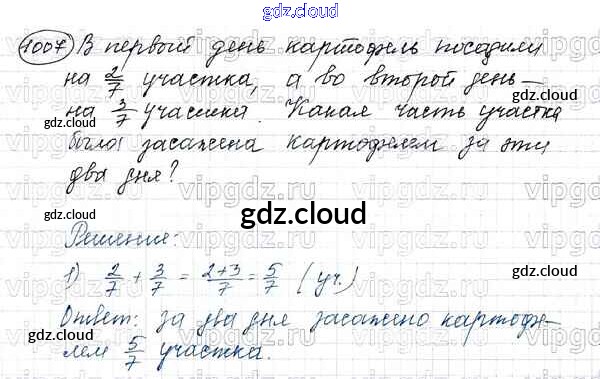 gdz.cloud
1007 В первый день картофель посадили
gdz.cloud
на 2/7 участка, а во второй день —
на 3/7 участка. Какая часть участка
была засажена картофелем за эти
gdz.cloud
два дня?
gdz.cloud
gdz.cloud
Решение:
1) 2/7 + 3/7 = 2+3/7 = 5/7 (уч.)
gdz.cloud
gdz.cloud
Ответ: за два дня засажено картофе-
лем 5/7 участка.
gdz.cloud